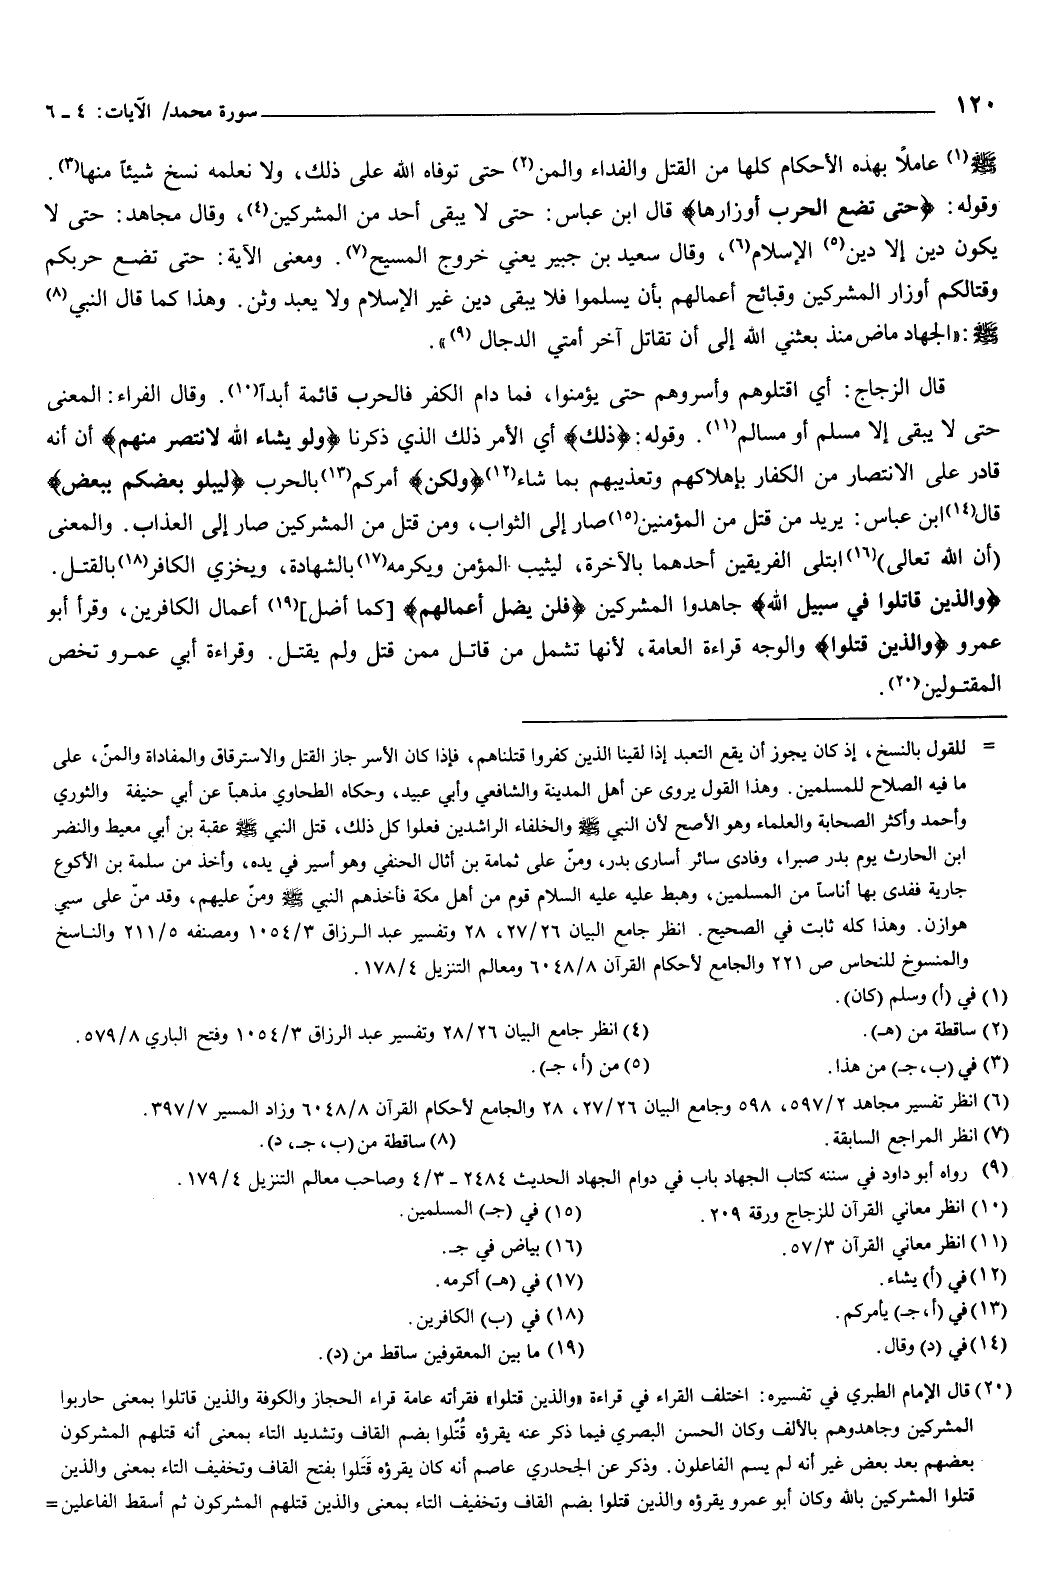 ١٢٠ سورة محمد/ الآيات: ٤ ـ ٦
ﷺ(١) عاملاً بهذه الأحكام كلها من القتل والفداء والمن(٢) حتى توفاه الله على ذلك، ولا نعلمه نسخ شيئاً منها(٣).
وقوله: ﴿حتى تضع الحرب أوزارها﴾ قال ابن عباس: حتى لا يبقى أحد من المشركين(٤)، وقال مجاهد: حتى لا
يكون دين إلا دين(٥) الإسلام(٦)، وقال سعيد بن جبير يعني خروج المسيح(٧). ومعنى الآية: حتى تضع حربكم
وقتالكم أوزار المشركين وقبائح أعمالهم بأن يسلموا فلا يبقى دين غير الإسلام ولا يعبد وثن. وهذا كما قال النبي(٨)
ﷺ:«الجهاد ماض منذ بعثني الله إلى أن تقاتل آخر أمتي الدجال (٩)».
قال الزجاج: أي اقتلوهم وأسروهم حتى يؤمنوا، فما دام الكفر فالحرب قائمة أبداً(١٠). وقال الفراء: المعنى
حتى لا يبقى إلا مسلم أو مسالم(١١). وقوله: ﴿ذلك﴾ أي الأمر ذلك الذي ذكرنا ﴿ولو يشاء الله لانتصر منهم﴾ أن أنه
قادر على الانتصار من الكفار بإهلاكهم وتعذيبهم بما شاء(١٢)﴿ولكن﴾ أمركم(١٣)بالحرب ﴿ليبلو بعضكم ببعض﴾
قال(١٤)ابن عباس: يريد من قتل من المؤمنين(١٥)صار إلى الثواب، ومن قتل من المشركين صار إلى العذاب. والمعنى
(أن الله تعالى)(١٦)ابتلى الفريقين أحدهما بالآخرة، ليثيب المؤمن ويكرمه(١٧)بالشهادة، ويخزي الكافر(١٨)بالقتل.
﴿والذين قاتلوا في سبيل الله﴾ جاهدوا المشركين ﴿فلن يضل أعمالهم﴾ [كما أضل](١٩) أعمال الكافرين، وقرأ أبو
عمرو ﴿والذين قتلوا﴾ والوجه قراءة العامة، لأنها تشمل من قاتل ممن قتل ولم يقتل. وقراءة أبي عمرو تخص
المقتولين(٢٠).
= للقول بالنسخ، إذ كان يجوز أن يقع التعبد إذا لقينا الذين كفروا قتلناهم، فإذا كان الأسر جاز القتل والاسترقاق والمفاداة والمنّ، على
ما فيه الصلاح للمسلمين. وهذا القول يروى عن أهل المدينة والشافعي وأبي عبيد، وحكاه الطحاوي مذهباً عن أبي حنيفة والثوري
وأحمد وأكثر الصحابة والعلماء وهو الأصح لأن النبي ﷺ والخلفاء الراشدين فعلوا كل ذلك، قتل النبي ﷺ عقبة بن أبي معيط والنضر
ابن الحارث يوم بدر صبرا، وفادى سائر أسارى بدر، ومنّ على ثمامة بن أثال الحنفي وهو أسير في يده، وأخذ من سلمة بن الأكوع
جارية ففدى بها أناساً من المسلمين، وهبط عليه عليه السلام قوم من أهل مكة فأخذهم النبي ﷺ ومنّ عليهم، وقد منّ على سبي
هوازن. وهذا كله ثابت في الصحيح. انظر جامع البيان ٢٧/٢٦، ٢٨ وتفسير عبد الرزاق ١٠٥٤/٣ ومصنفه ٢١١/٥ والناسخ
والمنسوخ للنحاس ص ٢٢١ والجامع لأحكام القرآن ٦٠٤٨/٨ ومعالم التنزيل ١٧٨/٤.
(١) في (أ) وسلم (كان).
(٢) ساقطة من (هـ). (٤) انظر جامع البيان ٢٨/٢٦ وتفسير عبد الرزاق ١٠٥٤/٣ وفتح الباري ٥٧٩/٨.
(٣) في (ب، جـ) من هذا. (٥) من (أ، جـ).
(٦) انظر تفسير مجاهد ٥٩٧/٢، ٥٩٨ وجامع البيان ٢٧/٢٦، ٢٨ والجامع لأحكام القرآن ٦٠٤٨/٨ وزاد المسير ٣٩٧/٧.
(٧) انظر المراجع السابقة. (٨) ساقطة من (ب، جـ، د).
(٩) رواه أبو داود في سننه كتاب الجهاد باب في دوام الجهاد الحديث ٢٤٨٤ ـ ٤/٣ وصاحب معالم التنزيل ١٧٩/٤.
(١٠) انظر معاني القرآن للزجاج ورقة ٢٠٩. (١٥) في (جـ) المسلمين.
(١١) انظر معاني القرآن ٥٧/٣. (١٦) بياض في جـ.
(١٢) في (أ) يشاء. (١٧) في (هـ) أكرمه.
(١٣) في (أ، جـ) يأمركم. (١٨) في (ب) الكافرين.
(١٤) في (د) وقال. (١٩) ما بين المعقوفين ساقط من (د).
(٢٠) قال الإمام الطبري في تفسيره: اختلف القراء في قراءة «والذين قتلوا» فقرأته عامة قراء الحجاز والكوفة والذين قاتلوا بمعنى حاربوا
المشركين وجاهدوهم بالألف وكان الحسن البصري فيما ذكر عنه يقرؤه قُتّلوا بضم القاف وتشديد التاء بمعنى أنه قتلهم المشركون
بعضهم بعد بعض غير أنه لم يسم الفاعلون. وذكر عن الجحدري عاصم أنه كان يقرؤه قَتَلوا بفتح القاف وتخفيف التاء بمعنى والذين
قتلوا المشركين بالله وكان أبو عمرو يقرؤه والذين قتلوا بضم القاف وتخفيف التاء بمعنى والذين قتلهم المشركون ثم أسقط الفاعلين =